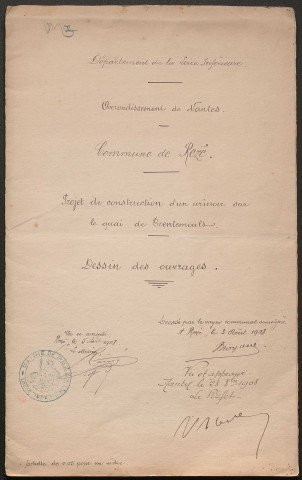 Département de la Loire Inférieure
Arrondissement de Nantes.
Commune de Rezé.
Projet de construction d'un urinoir sur
le quai de Trentemoult.
Dessin des ouvrages.
Dressé par le voyer communal
à Rezé, le 3 Août 1908
Vu et
Rezé, le 1908
Le Maire
Vu et approuvé
Nantes, le 21 1908
Le Préfet
Echelle de par mètre